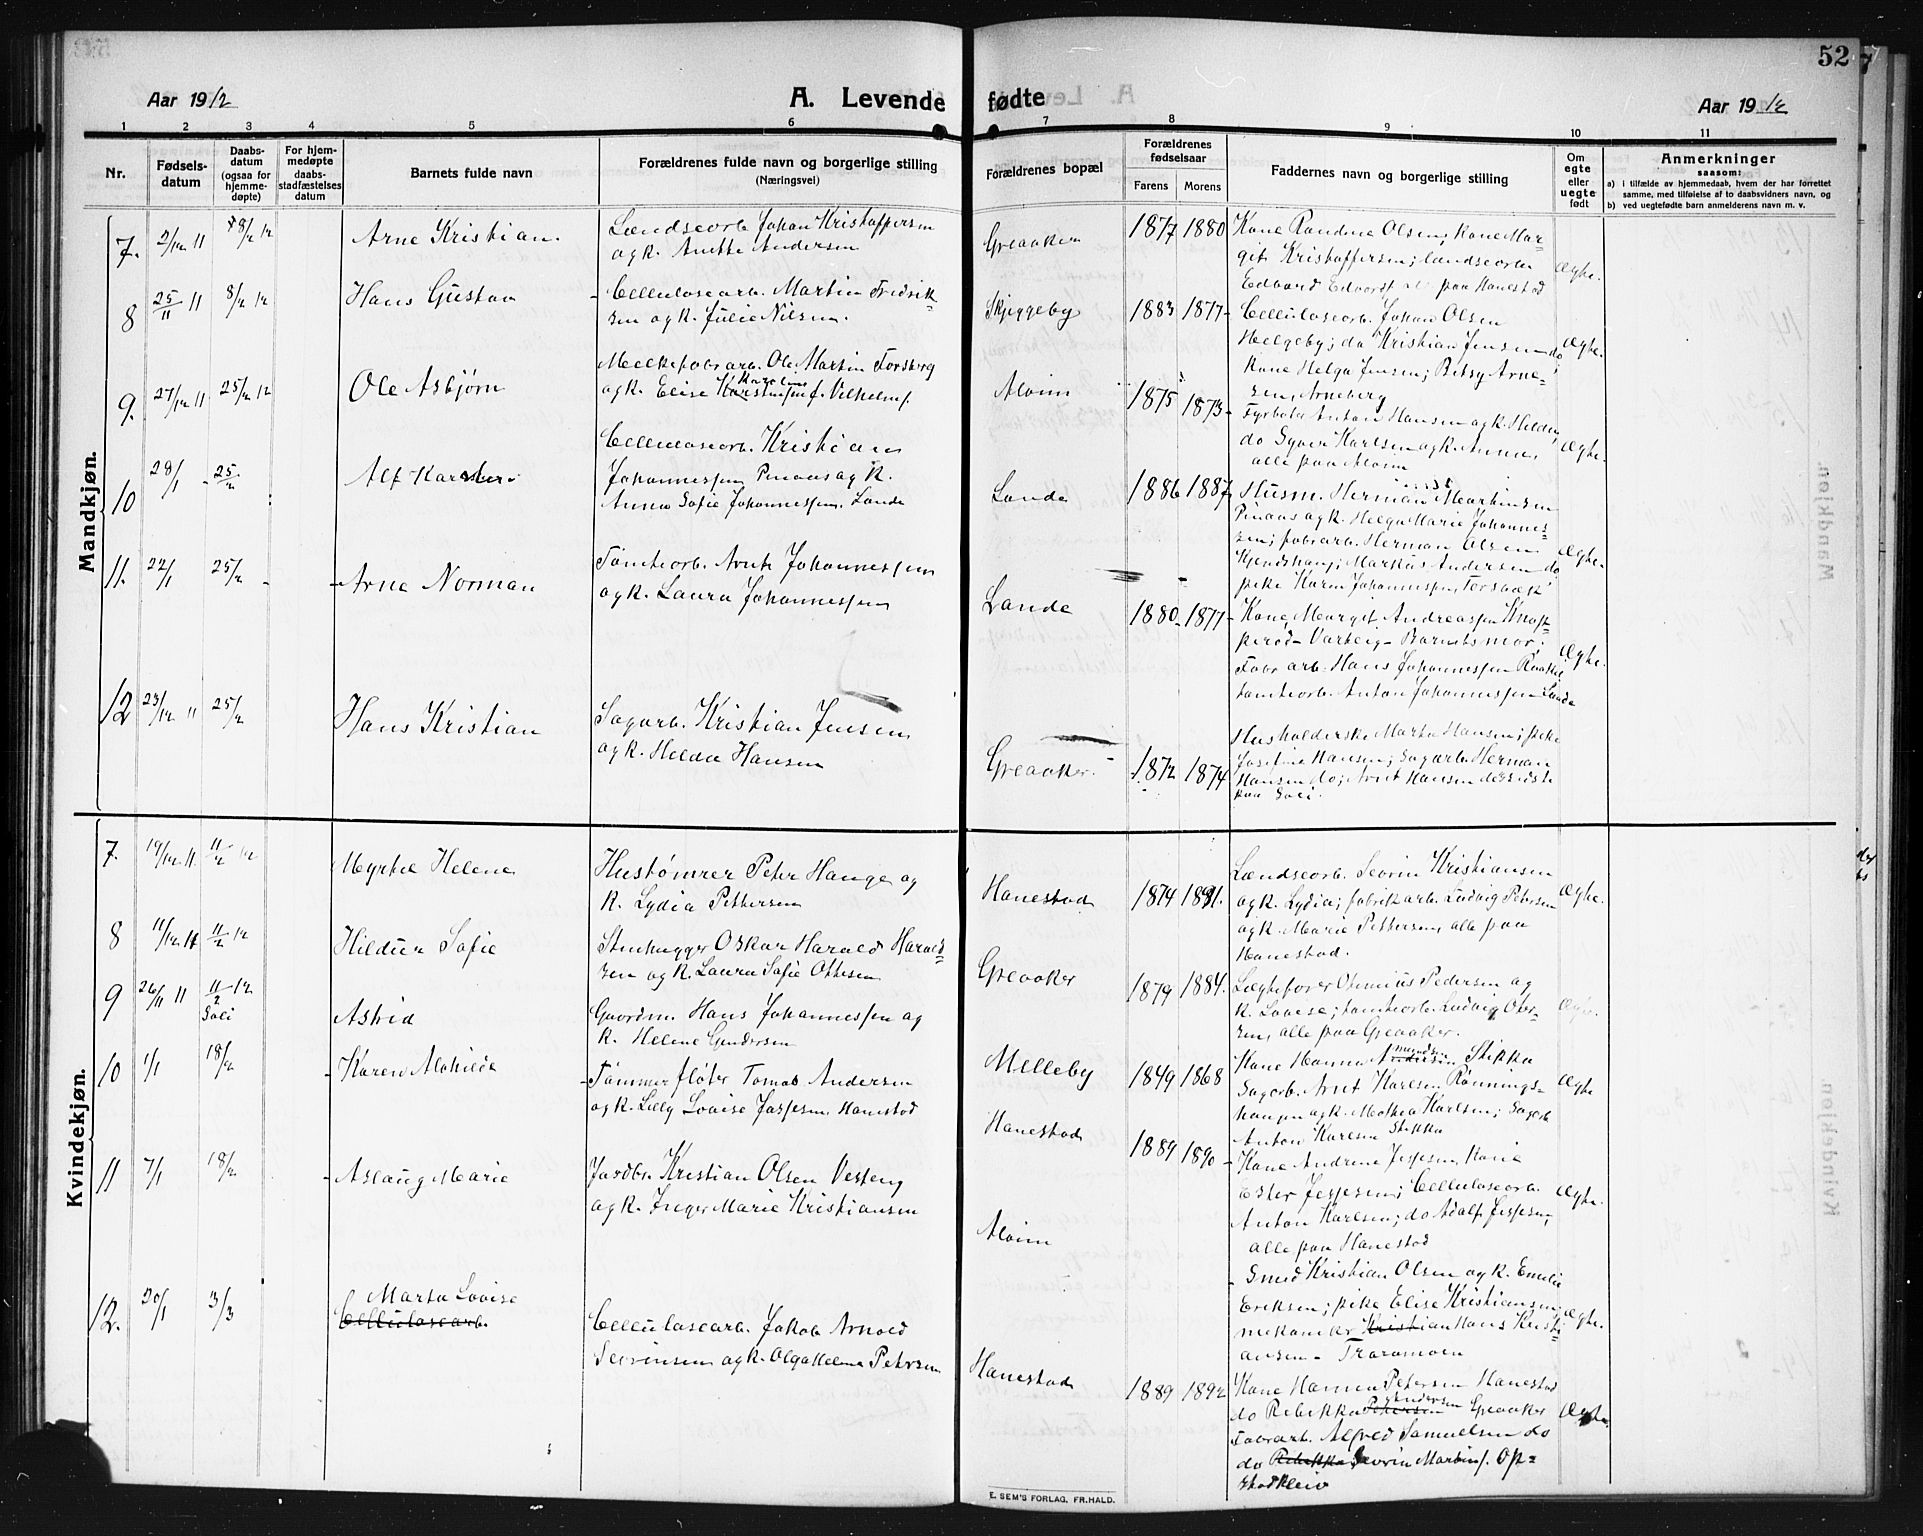 52
Aar 1912
A. Levende fødte
Aar 1912
1 2 3 4 5 6 7 8 9 10 11
Nr.
Fødsels-
datum
Daabs-
datum
(ogsaa for
hjemme-
døpte)
For hjem-
medøpte
daabs-
stadfæstelses
datum
Barnets fulde navn
Forældrenes fulde navn og borgerlige stilling
(Næringsvei)
Forældrenes bopæl
Forældrenes
fødselsaar
Farens Morens
Faddernes navn og borgerlige stilling
Om
egte
eller
uegte
født
Anmerkninger
saasom:
a) i tilfælde av hjemmedaab, hvem der har forrettet
samme, med tilføielse af to daabsvidners navn, og
b) ved uegtefødte barn anmelderens navn m. v.
Mandkjøn.
7. 2/12 11 8/2 12 Arne Kristian
Lændsearb. Johan Kristoffersen
og k. Anette Andersen
Greaaker 1877 1880
Kone Randine Olsen; kone Mar-
git Kristoffersen; lændsearb.
Edvard paa Hanestad
Ægte.
8 25/11 11 8/2 12 Hans Gustav
Cellulosearb. Martin Fredrik-
sen og k. Julie Nilsen.
Skjeggeby 1883 1877
Cellulosearb. Johan Olsen
Helgeby; do Kristian Jensen do
Kone Helga Jensen; Betsy Arne-
sen, Arneberg
Ægte.
9. 27/12 11 25/2 12 Ole Asbjørn
Melkefabrarb. Ole Martin Torsberg
og k. Elise Karoline Vilhelms.
Alvim 1875 1873
Fyrbøter Anton Hansen og k. Hilda,
do Syver Karlsen og k. Anna,
alle paa Alvim
Ægte.
10 28/1 25/2 Alf Karsten
Cellulosearb. Kristian
Johannessen og k.
Anna Sofie Johannessen. Lande
Lande 1886 1887
Husm. Herman Martinsen
og k. Helga Marie Johannes-
sen; fabrarb. Herman Olsen
Markus Andersen do
pike Karen Johannessen
Ægte.
11. 22/1 25/2 Arne Norman
Tomtearb. Arnt Johannessen
og k. Laura Johannessen
Lande 1880 1877
Kone Margit Andreassen
Varteig - Barnets mor;
Fabrarb. Hans Johannessen
tomtearb. Anton Johannessen Lande
Ægte.
12 23/12 11 25/2 Hans Kristian
Sagarb. Kristian Jensen
og k. Hilda Hansen
Greaaker. 1872 1874
Husholderske Marta Hansen; pike
Josefine Hansen; Sagarb. Herman
Hansen do; Arnt Hansen de sidste
paa Soli.
Kvindekjøn.
7. 19/12 11 11/2 12 Myrtel Helene
Hustømrer Peter Hauge og
k. Lydia Pettersen
Hanestad 1874 1881.
Lændsearb. Sevrin Kristiansen
og k. Lydia; fabrikarb. Ludvig Petersen
og k. Marie Pettersen, alle paa
Hanestad.
Ægte.
8 11/12 11 11/2 12 Hildur Sofie
Stenhugger Oskar Harald Harald-
sen og k. Laura Sofie Ottesen
Greaaker 1879 1884.
Otinius Pedersen og
k. Lovise; tomtearb. Ludvig
alle paa Greaaker.
9 26/11 11 11/2 12 Soli Astrid
Gaardm. Hans Johannessen og
k. Helene Gundersen
Melleby 1849 1868
Kone Hanna Amundsen Stikka
Sagarb. Arnt Karlsen Rønnings-
haugen og k. Mathea Karlsen; Sagarb
Anton Karlsen Stikka
Ægte
10 1/1 18/2 Karen Mathilde
Tømmerfløter Tomas Andersen
og k. Lilly Lovise Jessen, Hanestad
Hanestad 1889 1890
Kone Andrine Jespersen, Kone
Ester Jespersen; Cellulosearb.
Anton Karlsen; do Adolf Jespersen,
alle paa Hanestad
Ægte.
11 7/1 18/2 Aslaug Marie
Jordbr. Kristian Olsen Vesteng
og k. Inger Marie Kristiansen
Alvim
Smed Kristian Olsen og k. Emilie
Eriksen; pike Elise Kristiansen;
mekaniker Kristian Hans Kristi-
ansen - Traramoen
Ægte.
12. 20/1 3/3 Marta Lovise
Cellulosearb.
Cellulosearb. Jakob Arnold
Sevrinsen og k. Olga Helene Petersen
Hanestad 1889 1892
Kone Hanna Petersen Hanestad
do Rebekka Petersen Andersen Greaaker
Fabrarb. Alfred Samuelsen do
do Rebekka Sevrin Martins. Op-
stadkleiv
Ægte.
E. SEM'S FORLAG, FR.HALD.